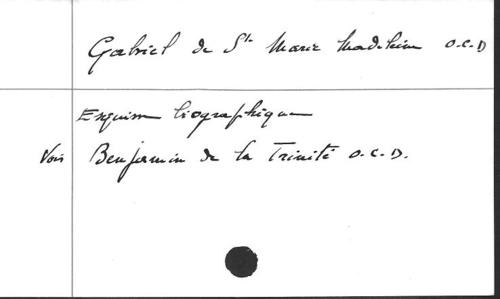 Gabriel de Ste Marie Madeleine O.C.D
Esquisse biographique
Voir Benjamin de la Trinité O.C.D.